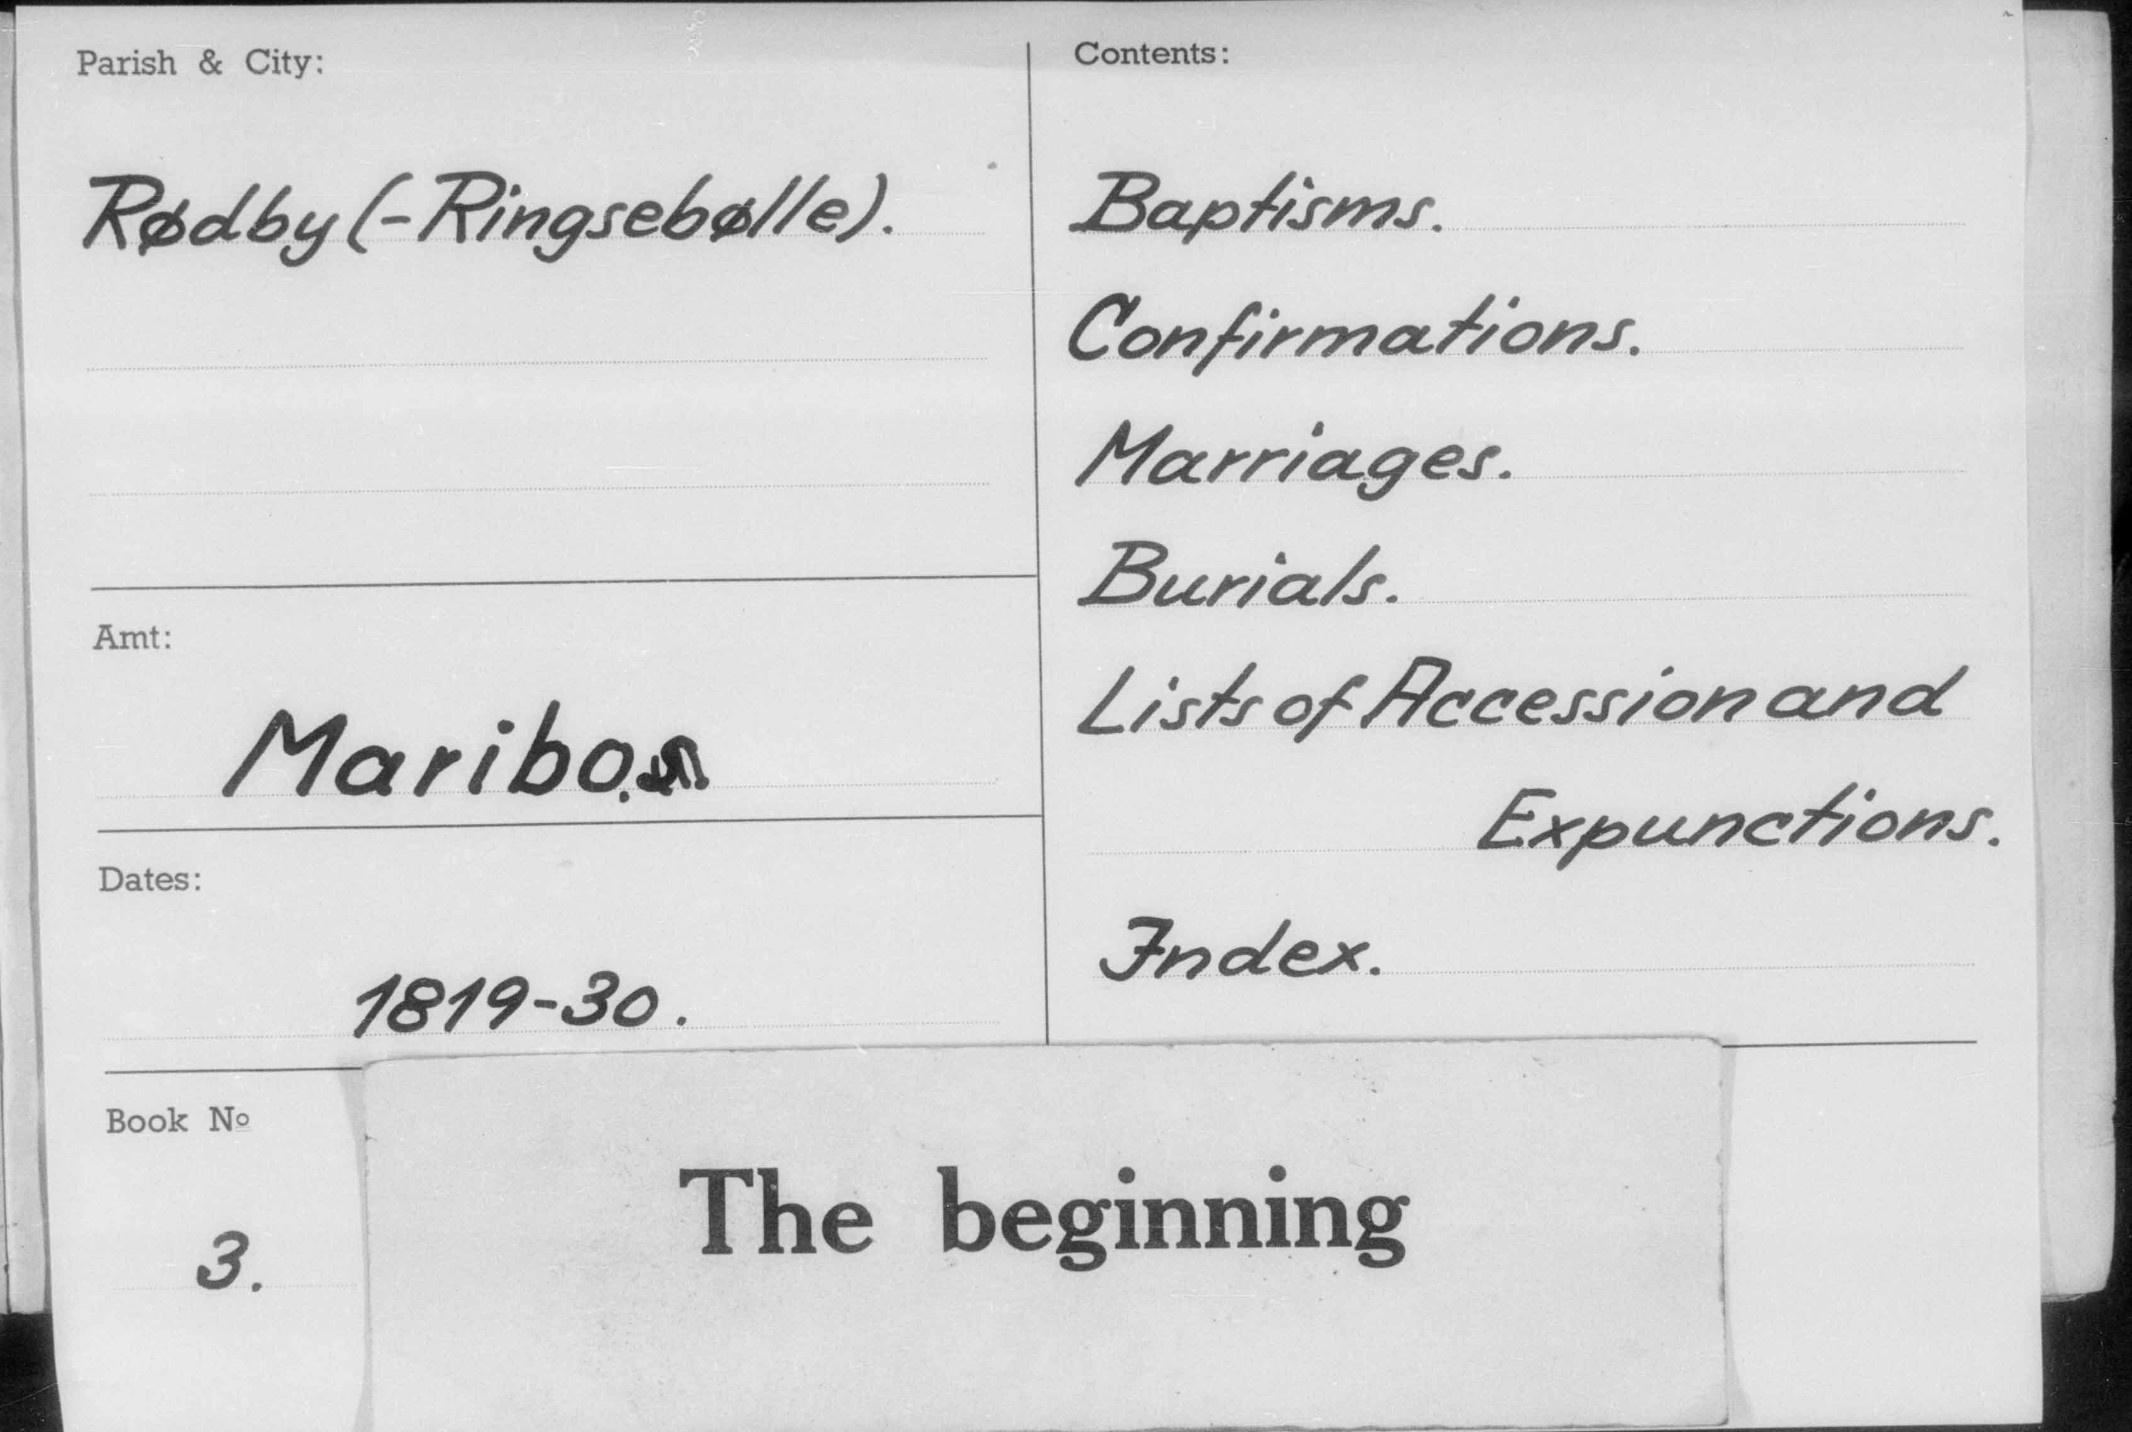 Parish & City:
Rødby (-Ringsebølle).
Amt:
Maribo.
Dates:
1819-30.
Book No
3.
Contents:
Baptisms.
Confirmations.
Marriages.
Burials.
Lists of Accession and
Expunctions.
Index.
The beginning